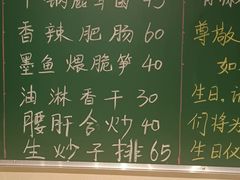 香辣肥肠60
墨鱼煨脆笋40
油淋香干30
腰肝合炒40
生炒子排65
尊敬
如
生日,请
们将为
生日仪